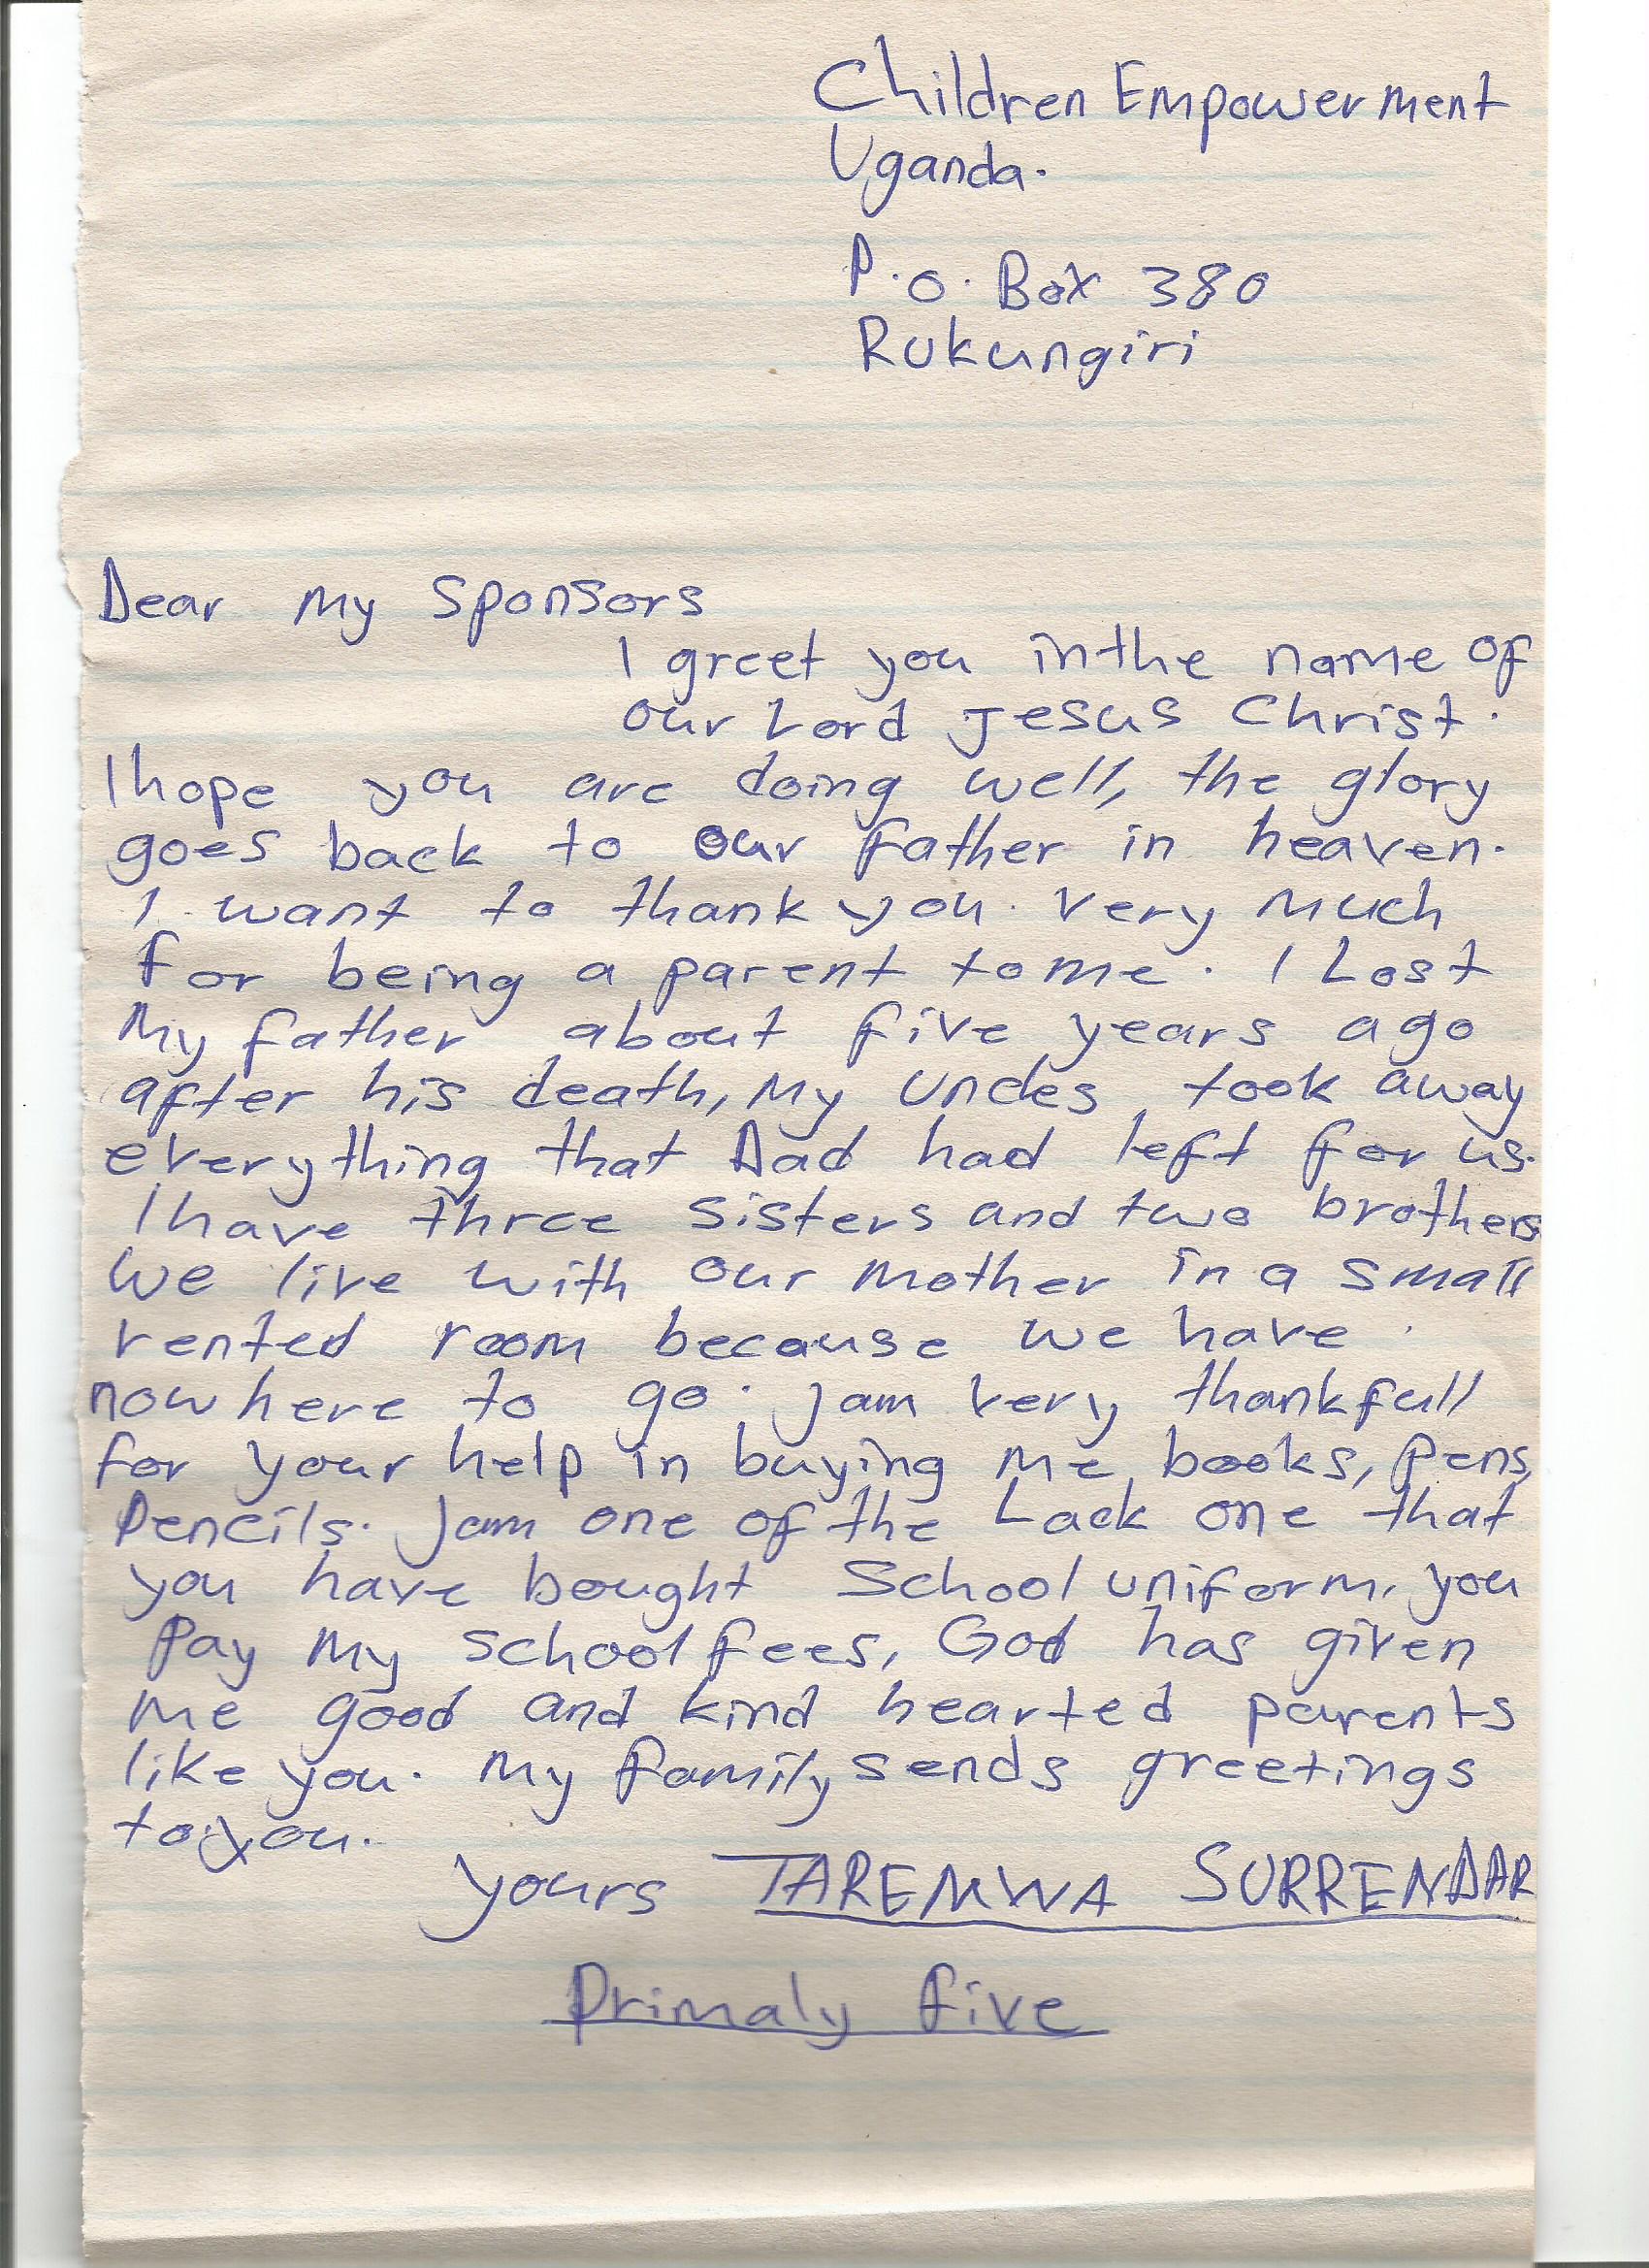 Children Empowerment
Uganda.
P.O. Box 380
Rukungiri
Dear My Sponsors
I greet you inthe name of
our Lord Jesus Christ.
I hope you are doing well, the glory
goes back to our father in heaven.
I want to thank you very much
for being a parent to me. I Lost
My father about five years ago
after his death, My uncles took away
everything that Dad had left for us.
I have three sisters and two brothers
We live with our mother in a small
rented room because we have
nowhere to go. Jam very thankfull
for your help in buying me, books, pens,
Pencils. Jam one of the Lack one that
you have bought School uniform, you
Pay My school fees, God has given
Me good and kind hearted parents
like you. My family sends greetings
to you.
yours TAREMWA SURRENDAR
Primaly five